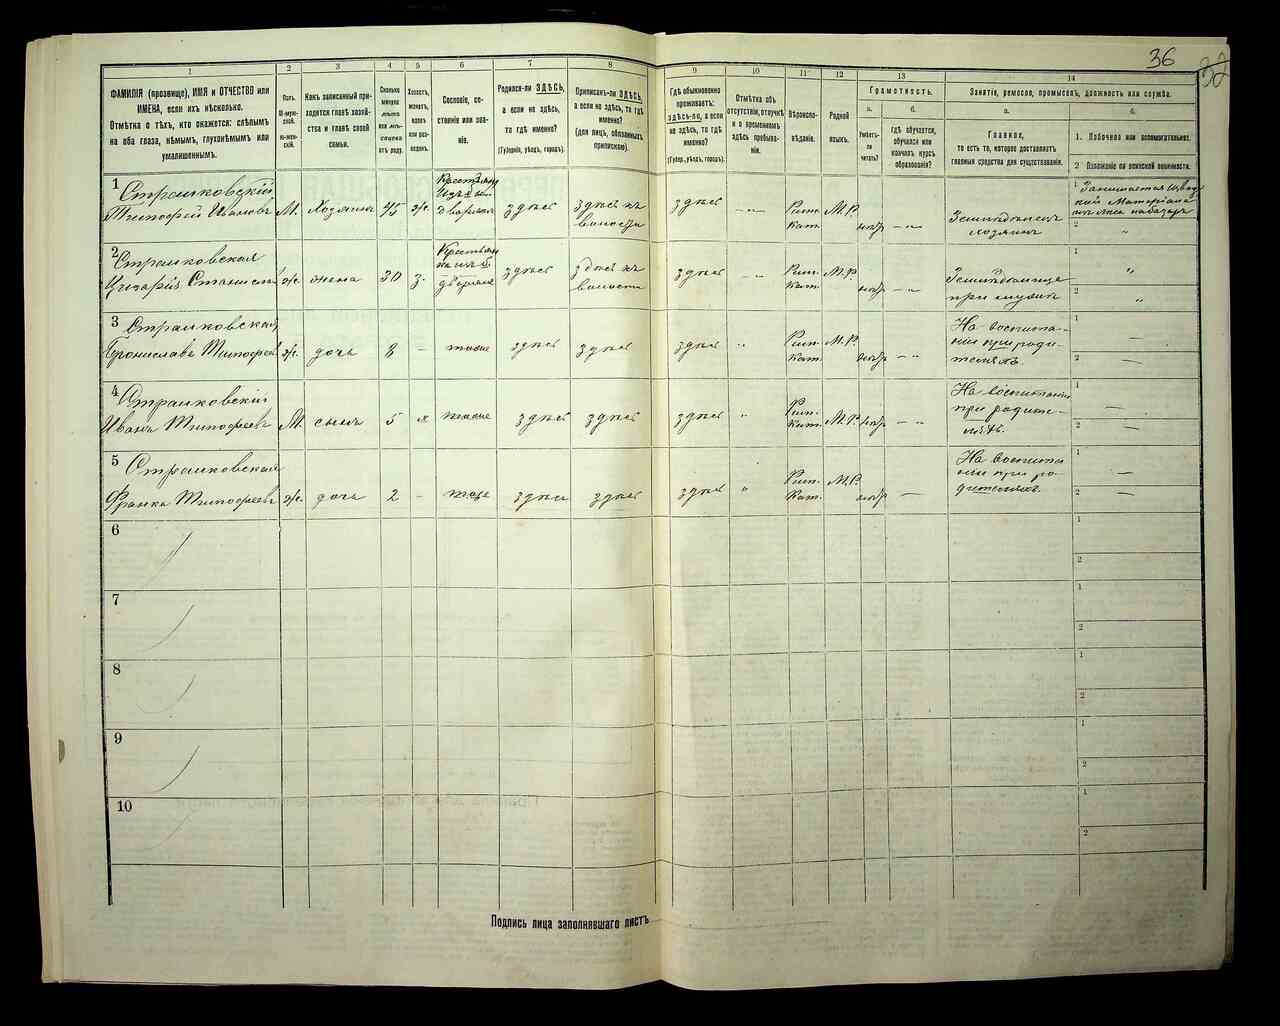 36
32
1
2
3
4
5
6
7
8
9
10
11
12
13
14
ФАМИЛІЯ (прозвище), ИМЯ и ОТЧЕСТВО или
ИМЕНА, если ихъ нѣсколько.
Отмѣтка о тѣхъ, кто окажется: слѣпымъ
на оба глаза, нѣмымъ, глухонѣмымъ или
умалишеннымъ.
Полъ.
М-муж-
ской.
Ж-жен-
скій.
Какъ записанный при-
ходится главѣ хозяй-
ства и главѣ своей
семьи.
Сколько
минуло
лѣтъ
или мѣ-
сяцевъ
отъ роду.
Холостъ,
женатъ,
вдовъ
или раз-
веденъ.
Сословіе, со-
стояніе или зва-
ніе.
Родился-ли ЗДѢСЬ,
а если не здѣсь,
то гдѣ именно?
(Губернія, уѣздъ, городъ).
Приписанъ-ли ЗДѢСЬ,
а если не здѣсь, то гдѣ
именно?
(Для лицъ, обязанныхъ
припискою).
Гдѣ обыкновенно
проживаетъ:
здѣсь-ли, а если
не здѣсь, то гдѣ
именно?
(Губер., уѣздъ, городъ).
Отмѣтка объ
отсутствіи, отлучкѣ
и о временномъ
здѣсь пребыва-
ніи.
Вѣроиспо-
вѣданіе.
Родной
языкъ.
Грамотность.
а.
Умѣетъ-
ли
читать?
б.
гдѣ обучается,
обучался или
кончилъ курсъ
образованія?
Занятіе, ремесло, промыселъ, должность или служба.
а.
Главное,
то есть то, которое доставляетъ
главныя средства для существованія.
б.
1. Побочное или вспомогательное.
2. Положеніе по воинской повинности.
1 Страшковскій
Тимофей Ивановъ М. Хозяинъ 45 ж. здѣсь здѣсь къ волости здѣсь Рим. Кат. М.Р. нѣтъ
2 Страшковская
ж. жена 30 з. здѣсь здѣсь къ волости здѣсь Рим. Кат. М.Р. нѣтъ
3 Страшковская
Бронислава Тимофеев ж. дочь 8 – тоже здѣсь здѣсь здѣсь Рим. Кат. М.Р. нѣтъ На воспита-
ніи при роди-
теляхъ
4 Страшковскій
Иванъ Тимофеевъ М. сынъ 5 х тоже здѣсь здѣсь здѣсь Рим. Кат. М.Р. нѣтъ На воспитаніи
при родите-
ляхъ.
5 Страшковская
Франка Тимофеев ж. дочь 2 – тоже здѣсь здѣсь здѣсь Рим. Кат. М.Р. нѣтъ На воспита
ніи при ро-
дителяхъ.
6
7
8
9
10
Подпись лица заполнявшаго листъ